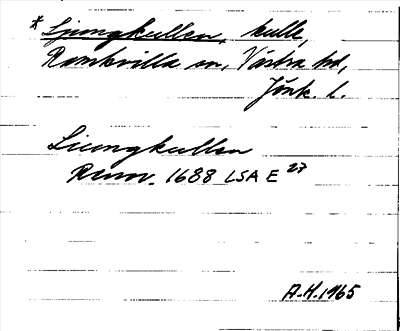 * Ljungkullen, kulle,
Ramkvilla sn, Västra hd,
Jönk. l.
Liungkullen
Renov. 1688 LSA E 27
A.H. 1965